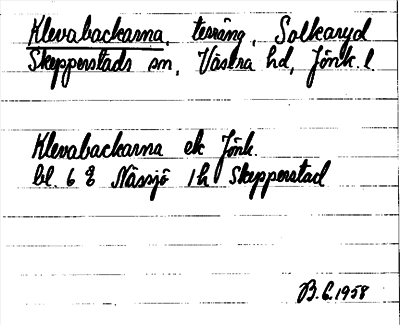 Klevabackarna, terräng, Solkaryd
Skepperstads sn, Västra hd, Jönk. l.
Klevabackarna ek Jönk.
bl. 6 E Nässjö 1h Skepperstad
B.E.1958